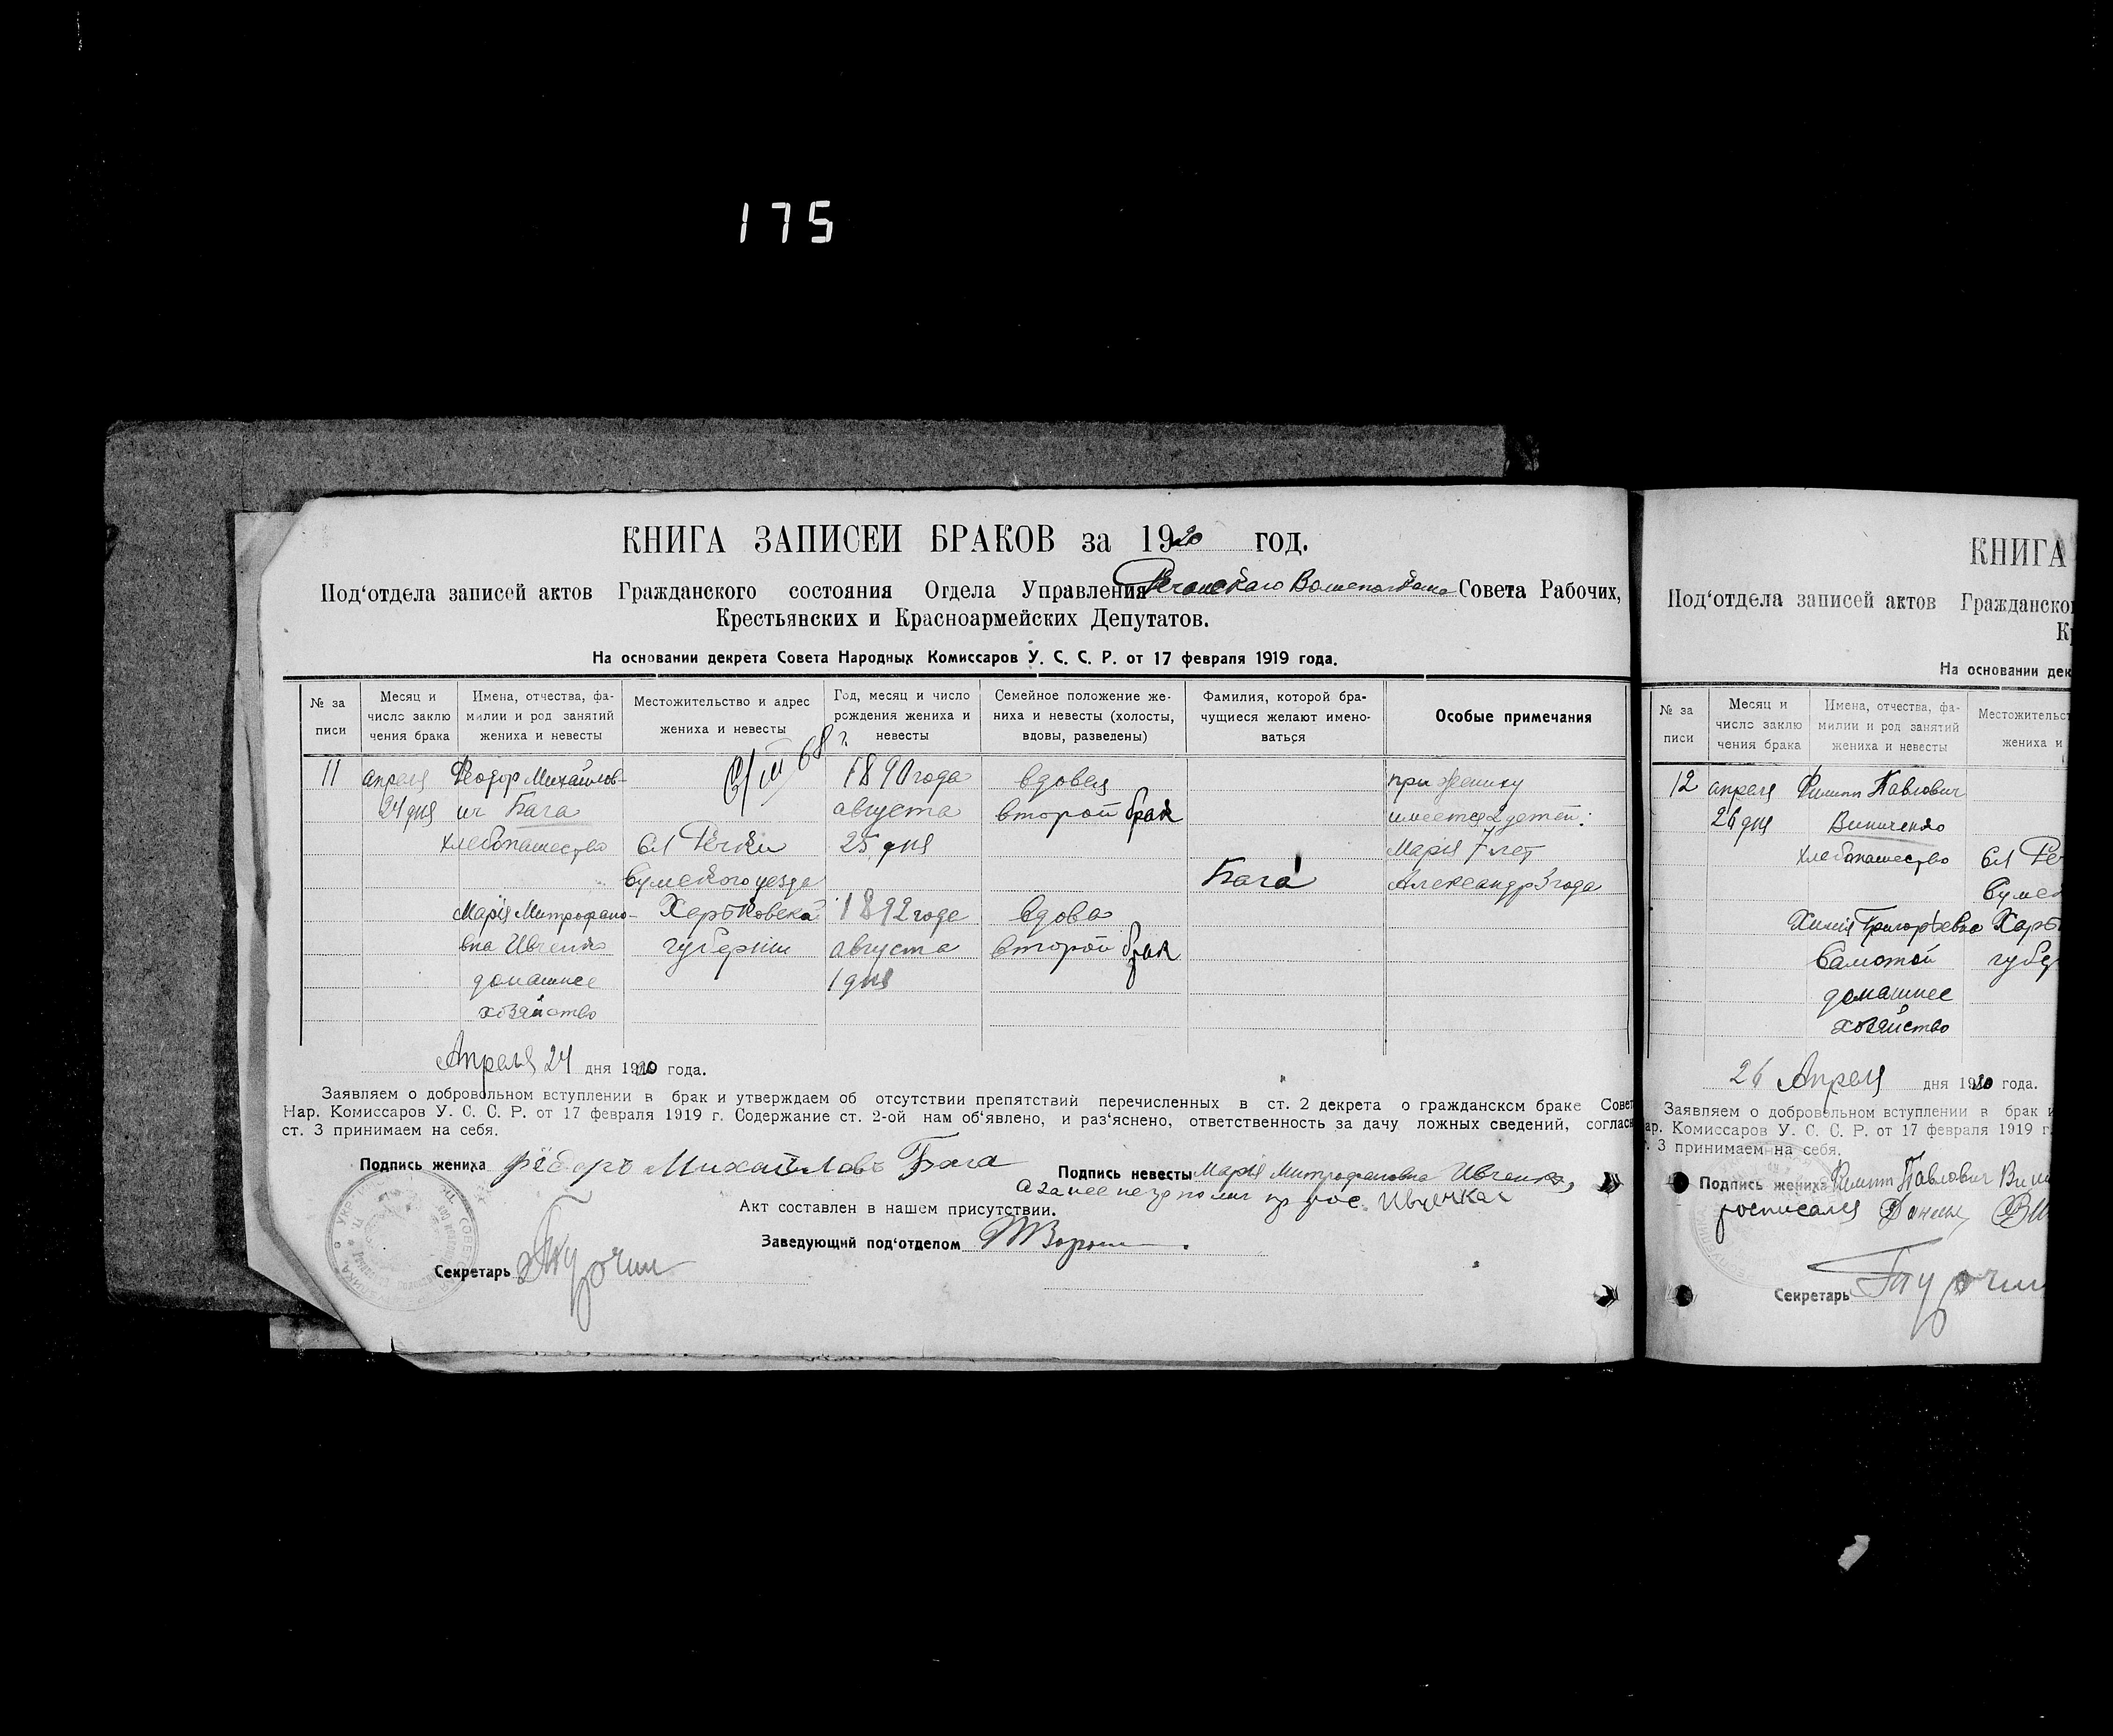 175
КНИГА ЗАПИСЕЙ БРАКОВ за 1920 год.
Под‘отдела записей актов Гражданского состояния Отдела Управления Совета Рабочих,
Крестьянских и Красноармейских Депутатов.
На основании декрета Совета Народных Комиссаров У. С. С. Р. от 17 февраля 1919 года.
№ за писи
Месяц и число заклю чения брака
Имена, отчества, фа- милии и род занятий жениха и невесты
Местожительство и адрес жениха и невесты
Год, месяц и число рождения жениха и невесты
Семейное положение же- ниха и невесты (холосты, вдовы, разведены)
Фамилия, которой бра- чущиеся желают имено- ваться
Особые примечания
11 апреля Феодор Михайлов- 1890 года вдовец при жениху
24 дня ич Бага августа второй брак имеется 2 детей:
хлебопашество сл Речки 25 дня Марія 7 лет
Сумского уезда Бага Александр 3 года
Марія Митрофано- Харьковской 1892 годе вдова
вна Ивченко губерніи августа второй брак
домашнее 1 дня
хозяйство
Апреля 24 дня 1920 года.
Заявляем о добровольном вступлении в брак и утверждаем об отсутствии препятствий перечисленных в ст. 2 декрета о гражданском браке Совет
Нар. Комиссаров У. С. С. Р. от 17 февраля 1919 г. Содержание ст. 2-ой нам об‘явлено, и раз‘яснено, ответственность за дачу ложных сведений, соглас
ст. 3 принимаем на себя.
Подпись жениха Фёдоръ Михайловъ Бага
Подпись невесты Марія Митрофановна Ивченко,
а за нее
Акт составлен в нашем присутствии.
Заведующий под‘отделом
Секретарь
КНИГА
Под‘отдела записей актов Гражданског
Кр
На основании дек
№ за писи
Месяц и число заклю чения брака
Имена, отчества, фа- милии и род занятий жениха и невесты
Местожительст жениха и
12 апреля Филипп Павлович
26 дня Виниченко
хлебопашество сл Реч
Сумск
Григорьевна Харьк
губер
домашнее
хозяйство
26 Апреля дня 1920 года.
Заявляем о добровольном вступлении в брак и
ар. Комиссаров У. С. С. Р. от 17 февраля 1919 г.
т. 3 принимаем на себя.
Подпись жениха Филипп Павлович Вини
росписался
Секретарь